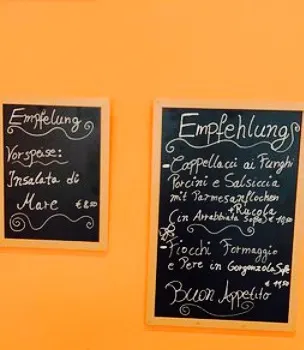 Empfelung
Vorspeise:
Insalata di
Mare € 8,50
Empfehlung
- Cappellacci ai Funghi
Porcini e Salsiccia
mit Parmesanflocken
+ Rucola
(in Arrabbiata Soße) €
- Fiocchi Formaggio
e Pere in Gorgonzola Soße
€ 11,50
Buon Appetito